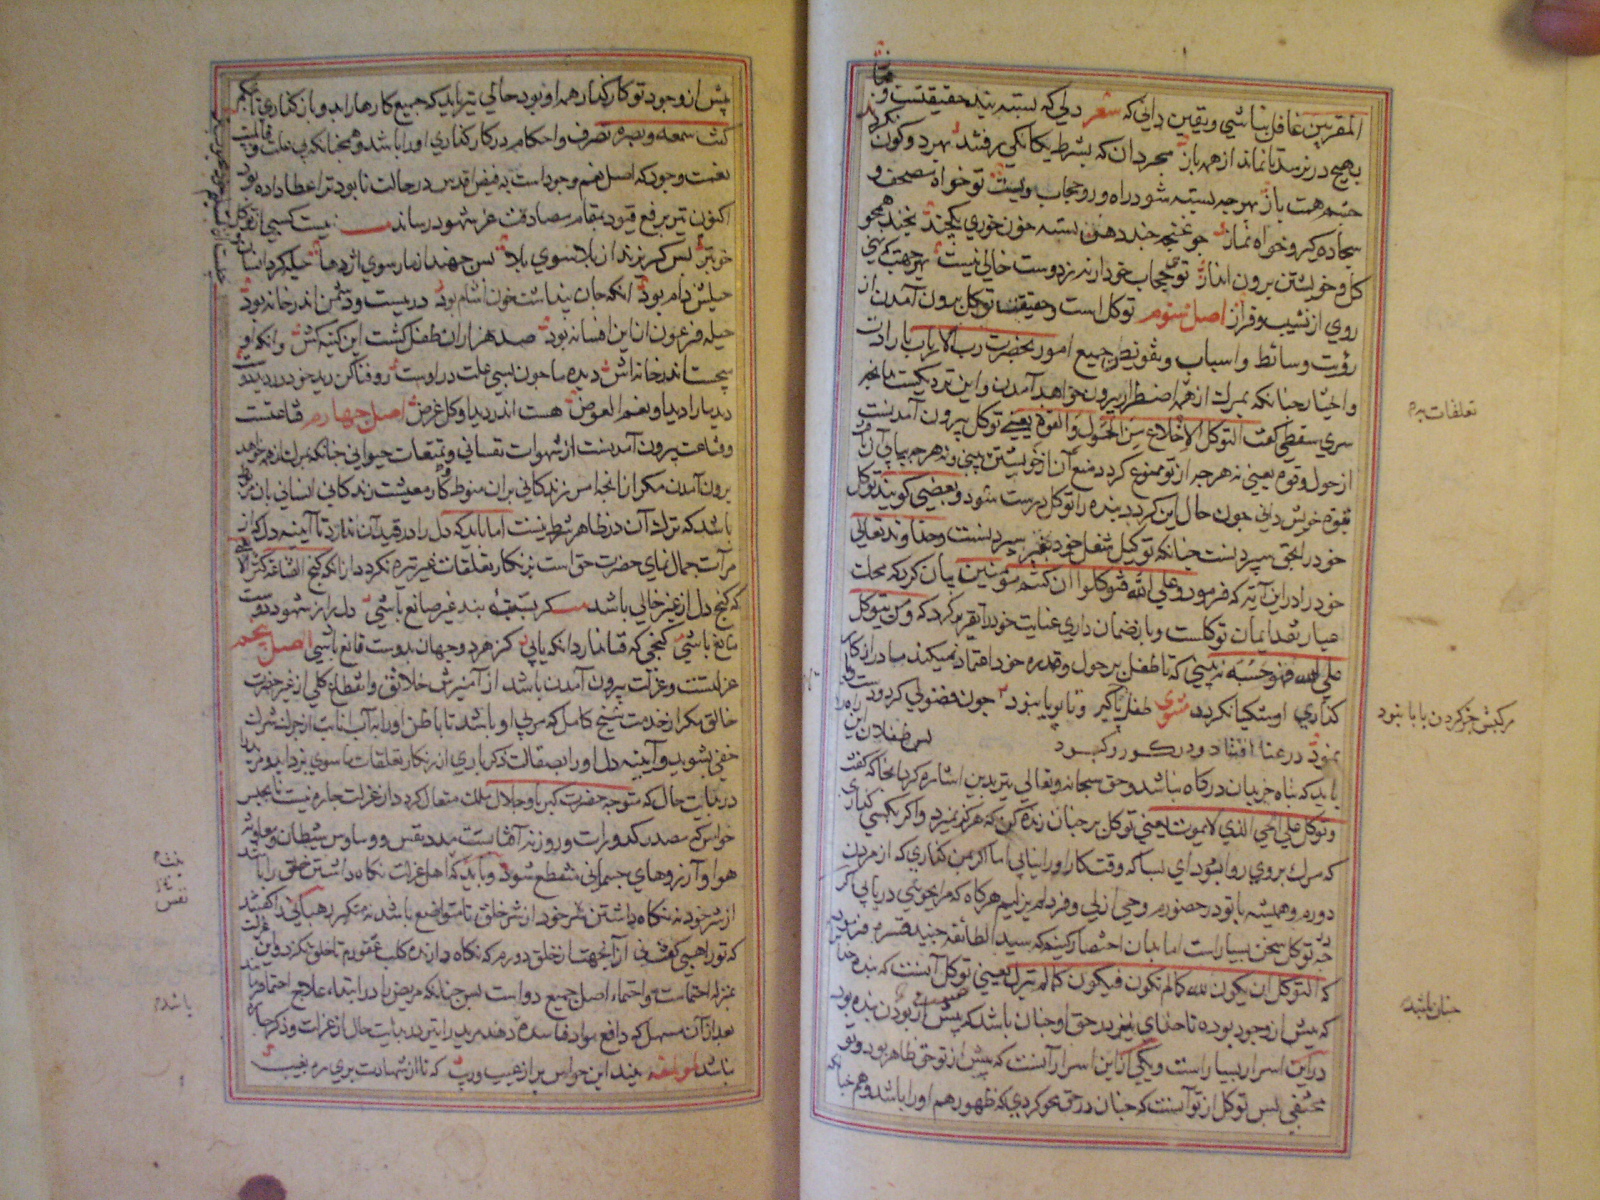 المقربین غافل نباشی و یقین دانی که شعر دلی که بسته بند حقیقتست و
بهیچ در نرسد تا نماند از همه باز مجرد آن که بشرط یکانکی برفتند بهر دو کون
چشم همت باز بهر چه بسته شود راه رو حجاب ویست تو خواه مصحف و
سجاده کیر و خواه نماز چو غنچه چند دهن بسته خون خوری یکچند بخند همچو
کل و خویشتن برون انداز تویی حجاب خود ارنه ز دوست خالی نیست بهر جهت که نهی
روی از نشیب و فراز اصل سوم توکل است و حقیقت توکل برون آمدن از
رؤیت وسائط و اسباب و تفویض جمیع امور بحضرت رب الارباب بارادت
و اختیار چنانکه بمرک از همه اضطرار بیرون خواهد آمدن و این نزدیکست بآنچه
سری سقطی کفت التوکل الانخلاع من الحول والقوة یعنی توکل بیرون آمدنست
از حول و قوه یعنی نه هرچه از تو ممنوع کردد منع آن از خویشتن بینی و نه هرچه بیابی آن را
بقوه خویش دانی چون حال این کردد بنده را توکل درست شود و بعضی کویند توکل
خود را بحق سپردنست چنانکه توکیل شغل خود بغیر سپردنست و خداوند تعالی
خود را در این آیه که فرمود و علی الله فتوکلوا ان کنتم مؤمنین بیان کرد که محک
عیار نقد ایمان توکلست و باز ضمان داری عنایت خود را تقریر کرد که و من یتوکل
علی الله فهو حسبه نه بینی که تا طفل بر حول و قدرة خود اعتماد نمیکند مادر از کار
کذاری او ستکیا نکردد مثنوی طفل تا کیر و تا پویا نبود چون فضولی کرد و دست و پا
نمود در عنا افتاد و در کور و کبود پس طفلان این راه را
باید که پناه جز بدان درکاه نباشد و حق سبحانه و تعالی نیز بدین اشاره کرد آنجا که کفت
و توکل علی الحی الذی لا یموت یعنی توکل بر چنان زنده کن که هرکز نمیرد و اکر بکسی کذاری
که مرک بروی روا بود ای بسا که وقت کار او را نیابی اما اکر بمن کذاری که از مردن
دورم و همیشه با تو در حضورم و حی ازلی و فرد لم یزلیم هرکاه که مرا بجویی دریابی اکر
چه در توکل سخن بسیار است اما بدان اختصار کنیم که سید الطائفه جنید قدس سره فرمود
که التوکل ان یکون لله کما لم تکون فیکون کما لم یزل یعنی توکل آنست که بنده چنان
که پیش از وجود بوده تا خدای نیز در حق او چنان باشد که پیش از بودن بنده بود
در این اسرار بسیار است و یکی از این اسرار آنست که پیش از تو حق ظاهر بود و تو
مختفی پس توکل از تو آنست که چنان در حق محو کردی که ظهور هم او را باشد و هم چنانکه
تعلقات برم
مرکبش جز کردن بابا نبود
چنان باشد
پیش از وجود تو کارکذار همه او بود حالی نیز باید که جمیع کارها را بدو باز کذاری تا بحکم
کنت سمعه و بصره تصرف و احکام در کار کذاری او را باشد و همچنانکه بی علت و قابلیت
نعمت وجود که اصل نعم وجود است به فیض اقدس در حالت نابود ترا عطا داده بود
اکنون نیز برفع قیود بمقام مصادقت عز شهود رساند نیست کسبی از توکل
خوبتر پس کریزند از بلا سوی بلا پس جهند از مار سوی اژدها حیله کرد انسان
حیلش دام بود آنکه جان پنداشت خون آشام بود در ببست و دشمن اندر خانه بود
حیله فرعون از این افسانه بود صد هزاران طفل کشت این کینه کش وانکه او
میجست اندر خانه اش دیده ما چون بسی علت دروست رو فنا کن دید خود در دید دوست
دید ما را دید او نعم العوض هست اندر دید او کل غرض اصل چهارم قناعتست
و قناعت بیرون آمدنست از شهوات نفسانی و تمتعات حیوانی چنانکه بمرک از همه خواهد
برون آمدن مکر از آنچه اس زندکانی بران منوط و کار معیشت زندکانی انسانی بآن مربوط
باشد که ترک آن در ظاهر شرط نیست اما باید که دل را در قید آن ندارد تا آیینه دل که از
مرآت جمال نمای حضرت حق است بزنکار تعلقات غیر تیره نکردد از آنکه کنج القناعة کنز لا یفنی
که کنج دل از غیر خالی باشد کر بسته بند غیر صانع باشی دل را ز شهود دوست
مانع باشی کنجی که فنا ندارد آنکه یابی کز هر دو جهان بدوست قانع باشی اصل پنجم
عزلتست و عزلت بیرون آمدن باشد از آمیزش خلائق و انقطاع کلی از غیر حضرت
خالق مکر از خدمت شیخ کامل که مربی او باشد تا باطن او را به آب انابت از جرک شرک
خفی بشوید و آیینه دل او را بصقالت ذکر باری از زنکار تعلقات ماسوی بزداید و مرید
در بدایت حال که متوجه حضرت کبریا و جلال ملک متعال کردد از عزلت چاره نیست تا بحبس
حواس که مصدر کدورات و روزنه آفاتست مدد نفس و وساوس شیطان و معاونت
هوا و آرزوهای جسمانی منقطع شود و باید که اهل عزلت نکاه داشتن خلق را باشد
از شر خود نه نکاه داشتن شر خود از شر خلق تا متواضع باشد نه متکبر رهبانی را کفتند
که تو راهبی کفت نی از آنجهت از خلق دورم که نکاه دارنده کلب عقورم تا خلق نکزد و این عزلت
بمنزله احتماست و احتماء اصل جمیع دواست پس چنانکه مریض را در ابتداء علاج احتما فرمایند
بعد از آن مسهل که دافع مواد فاسده دهند مرید را نیز در بدایت حال از عزلت و ذکر چاره
نباشد بیند این حواس پر از عیب و ریب که تا از شهادت بری ره بغیب
باشدم